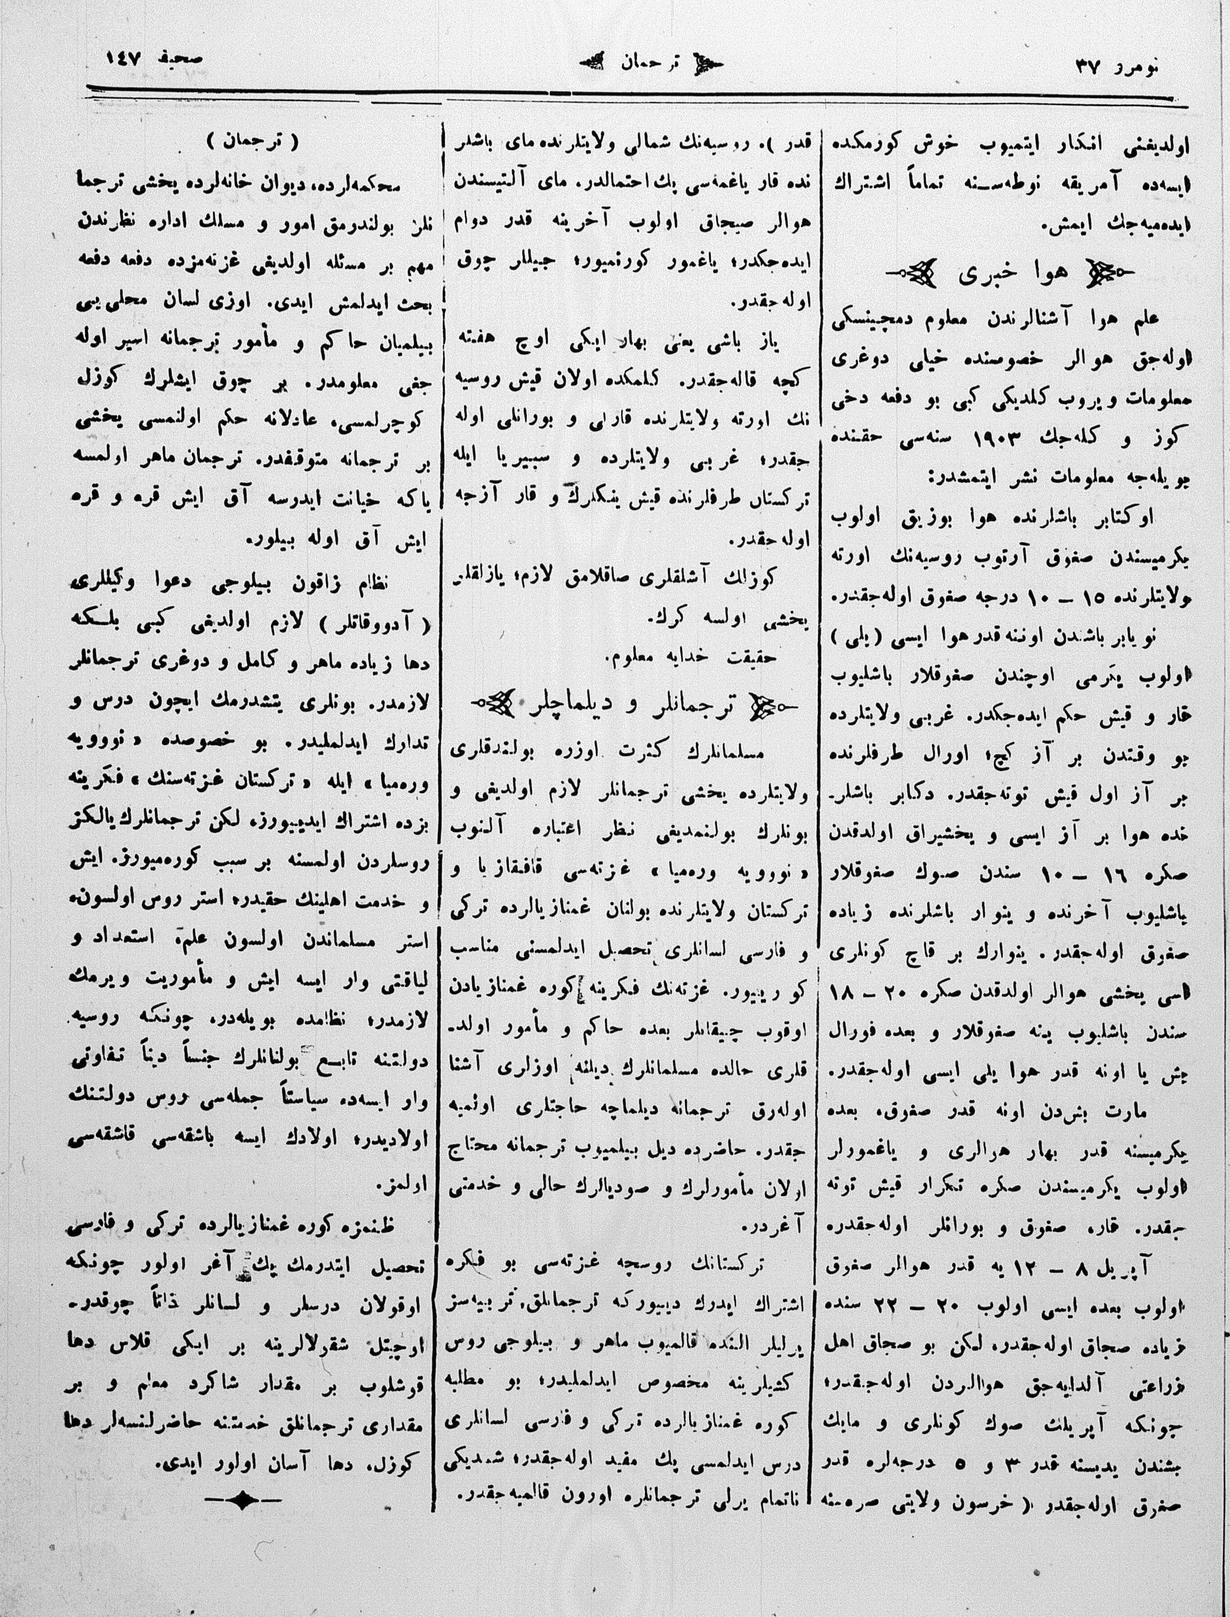 نومرو ٣٧
ترجمان
صحیفه ١٤٧
اولدیغنی انکار ایتمیوب خوش کورمکده
ایسه‌ده آمریقه نوطه‌سنه تماماً اشتراك
ایده‌میه‌جك ایمش.
هوا خبری
علم هوا آشنالرندن معلوم دمچینسکی
اوله‌جق هوالر خصوصنده خیلی دوغری
معلومات ویروب کلدیکی کبی بو دفعه دخی
کوز و کله‌جك ١٩٠٣ سنه‌سی حقنده
بویله‌جه معلومات نشر ایتمشدر:
اوکتابر باشلرنده هوا بوزیق اولوب
یکرمیسندن صغوق آرتوب روسیه‌نك اورته
ولایتلرنده ١٥ – ١٠ درجه صغوق اوله‌جقدر.
نویابر باشدن اوننه قدر هوا ایسی (یلی)
اولوب یکرمی اوچندن صغوقلار باشلیوب
قار و قیش حکم ایده‌جکدر. غربی ولایتلرده
بو وقتدن بر آز کیج؛ اورال طرفلرنده
بر آز اول قیش توته‌جقدر. دکابر باشلر-
نده هوا بر آز ایسی و یخشیراق اولدقدن
صکره ١٦ – ١٠ سندن صوك صغوقلار
باشلیوب آخرنده و ینوار باشلرنده زیاده
صغوق اوله‌جقدر. ینوارك بر قاچ کونلری
اسی یخشی هوالر اولدقدن صکره ٢٠ – ١٨
سندن باشلیوب ینه صغوقلار و بعده فورال
بش یا اونه قدر هوا یلی ایسی اوله‌جقدر.
مارت بشدن اونه قدر صغوق، بعده
یکرمیسنه قدر بهار هوالری و یاغمورلر
اولوب یکرمیسندن صکره تکرار قیش توته
جقدر. قار، صغوق و بورانلر اوله‌جقدر.
آپریل ٨ – ١٢ یه قدر هوالر صغوق
اولوب بعده ایسی اولوب ٢٠ – ٢٢ سنده
زیاده صجاق اوله‌جقدر. لکن بو صجاق اهل
زراعتی آلدایه‌جق هوالردن اوله‌جقدر؛
چونکه آپریلك صوك کونلری و مایك
بشندن یدیسنه قدر ٣ و ٥ درجه‌لره قدر
صغوق اوله‌جقدر (خرسون ولایتی صره‌سنه
قدر). روسیه‌نك شمالی ولایتلرنده مای باشلر
نده قار یاغمه‌سی پك احتمالدر. مای آلتیسندن
هوالر صیجاق اولوب آخرینه قدر دوام
ایده‌جکدر؛ یاغمور کورنمیور؛ جیللر چوق
اوله‌جقدر.
یاز باشی یعنی بهار ایکی اوچ هفته
کچه قاله‌جقدر. کلمکده اولان قیش روسیه
نك اورته ولایتلرنده قارلی و بورانلی اوله
جقدر؛ غربی ولایتلرده و سبیریا ایله
ترکستان طرفلرنده قیش ینکلرك و قار آزجه
اوله‌جقدر.
کوزلك آشلقلری صاقلامق لازم؛ یازلقلر
یخشی اولسه کرك.
حقیقت خدایه معلوم.
ترجمانلر و دیلماچلر
مسلمانلرك کثرت اوزره بولندقلری
ولایتلرده یخشی ترجمانلر لازم اولدیغی و
بونلرك بولنمدیغی نظر اعتباره آلنوب
«نوویه وره‌میا» غزته‌سی قافقازیا و
ترکستان ولایتلرنده بولنان غمنازیالرده ترکی
و فارسی لسانلری تحصیل ایدلمسنی مناسب
کورییور. غزته‌نك فکرینه کوره غمنازیادن
اوقوب چیقانلر بعده حاکم و مأمور اولد-
قلری حالده مسلمانلرك دیلنه اوزلری آشنا
اوله‌رق ترجمانه دیلماچه حاجتلری اولمیه
جقدر. حاضرده دیل بیلمیوب ترجمانه محتاج
اولان مأمورلرك و صودیالرك حالی و خدمتی
آغردر.
ترکستانك روسچه غزته‌سی بو فکره
اشتراك ایدرك دییورکه ترجمانلق، تربیه‌سز
یرلیلر النده قالمیوب ماهر و بیلوجی روس
کشیلرینه مخصوص ایدلملیدر؛ بو مطلبه
کوره غمنازیالرده ترکی و فارسی لسانلری
درس ایدلمسی پك مفید اوله‌جقدر؛ شمدیکی
ناتمام یرلی ترجمانلره اورون قالمیه‌جقدر.
(ترجمان)
محکمه‌لرده، دیوان خانه‌لرده یخشی ترجما
نلر بولندرمق امور و مسلك اداره نظرندن
مهم بر مسئله اولدیغی غزنه‌مزده دفعه دفعه
بحث ایدلمش ایدی. اوزی لسان محلی‌یی
بیلمیان حاکم و مأمور ترجمانه اسیر اوله
جغی معلومدر. بر چوق ایشلرك کوزل
کوچرلمسی، عادلانه حکم اولنمسی یخشی
بر ترجمانه متوقفدر. ترجمان ماهر اولمسه
یاکه خیانت ایدرسه آق ایش قره و قره
ایش آق اوله بیلور.
نظام زاقون بیلوجی دعوا وکیللری
(آدووقاتلر) لازم اولدیغی کبی بلکه
دها زیاده ماهر و کامل و دوغری ترجمانلر
لازمدر. بونلری یتشدرمك ایچون درس و
تدارك ایدلملیدر. بو خصوصده «نوویه
وره‌میا» ایله «ترکستان غزته‌سنك» فکرینه
بزده اشتراك ایدییورز. لکن ترجمانلرك یالکز
روسلردن اولمسنه بر سبب کوره‌میورز. ایش
و خدمت اهلینك حقیدر؛ استر روس اولسون،
استر مسلماندن اولسون علم، استعداد و
لیاقتی وار ایسه ایش و مأموریت ویرمك
لازمدر؛ نظامده بویله‌در. چونکه روسیه
دولتنه تابع بولنانلرك جنساً دیناً تفاوتی
وار ایسه‌ده سیاستاً جمله‌سی روس دولتنك
اولادیدر؛ اولادك ایسه باشقه‌سی قاشقه‌سی
اولمز.
ظنمزه کوره غمنازیالرده ترکی و فارسی
تحصیل ایتدرمك پك آغر اولور چونکه
اوقولان درسلر و لسانلر ذاتاً چوقدر.
اوچیتل شقولالرینه بر ایکی قلاس دها
قوشلوب بر مقدار شاکرد معلم و بر
مقداری ترجمانلق خدمتنه حاضرلنسه‌لر دها
کوزل، دها آسان اولور ایدی.